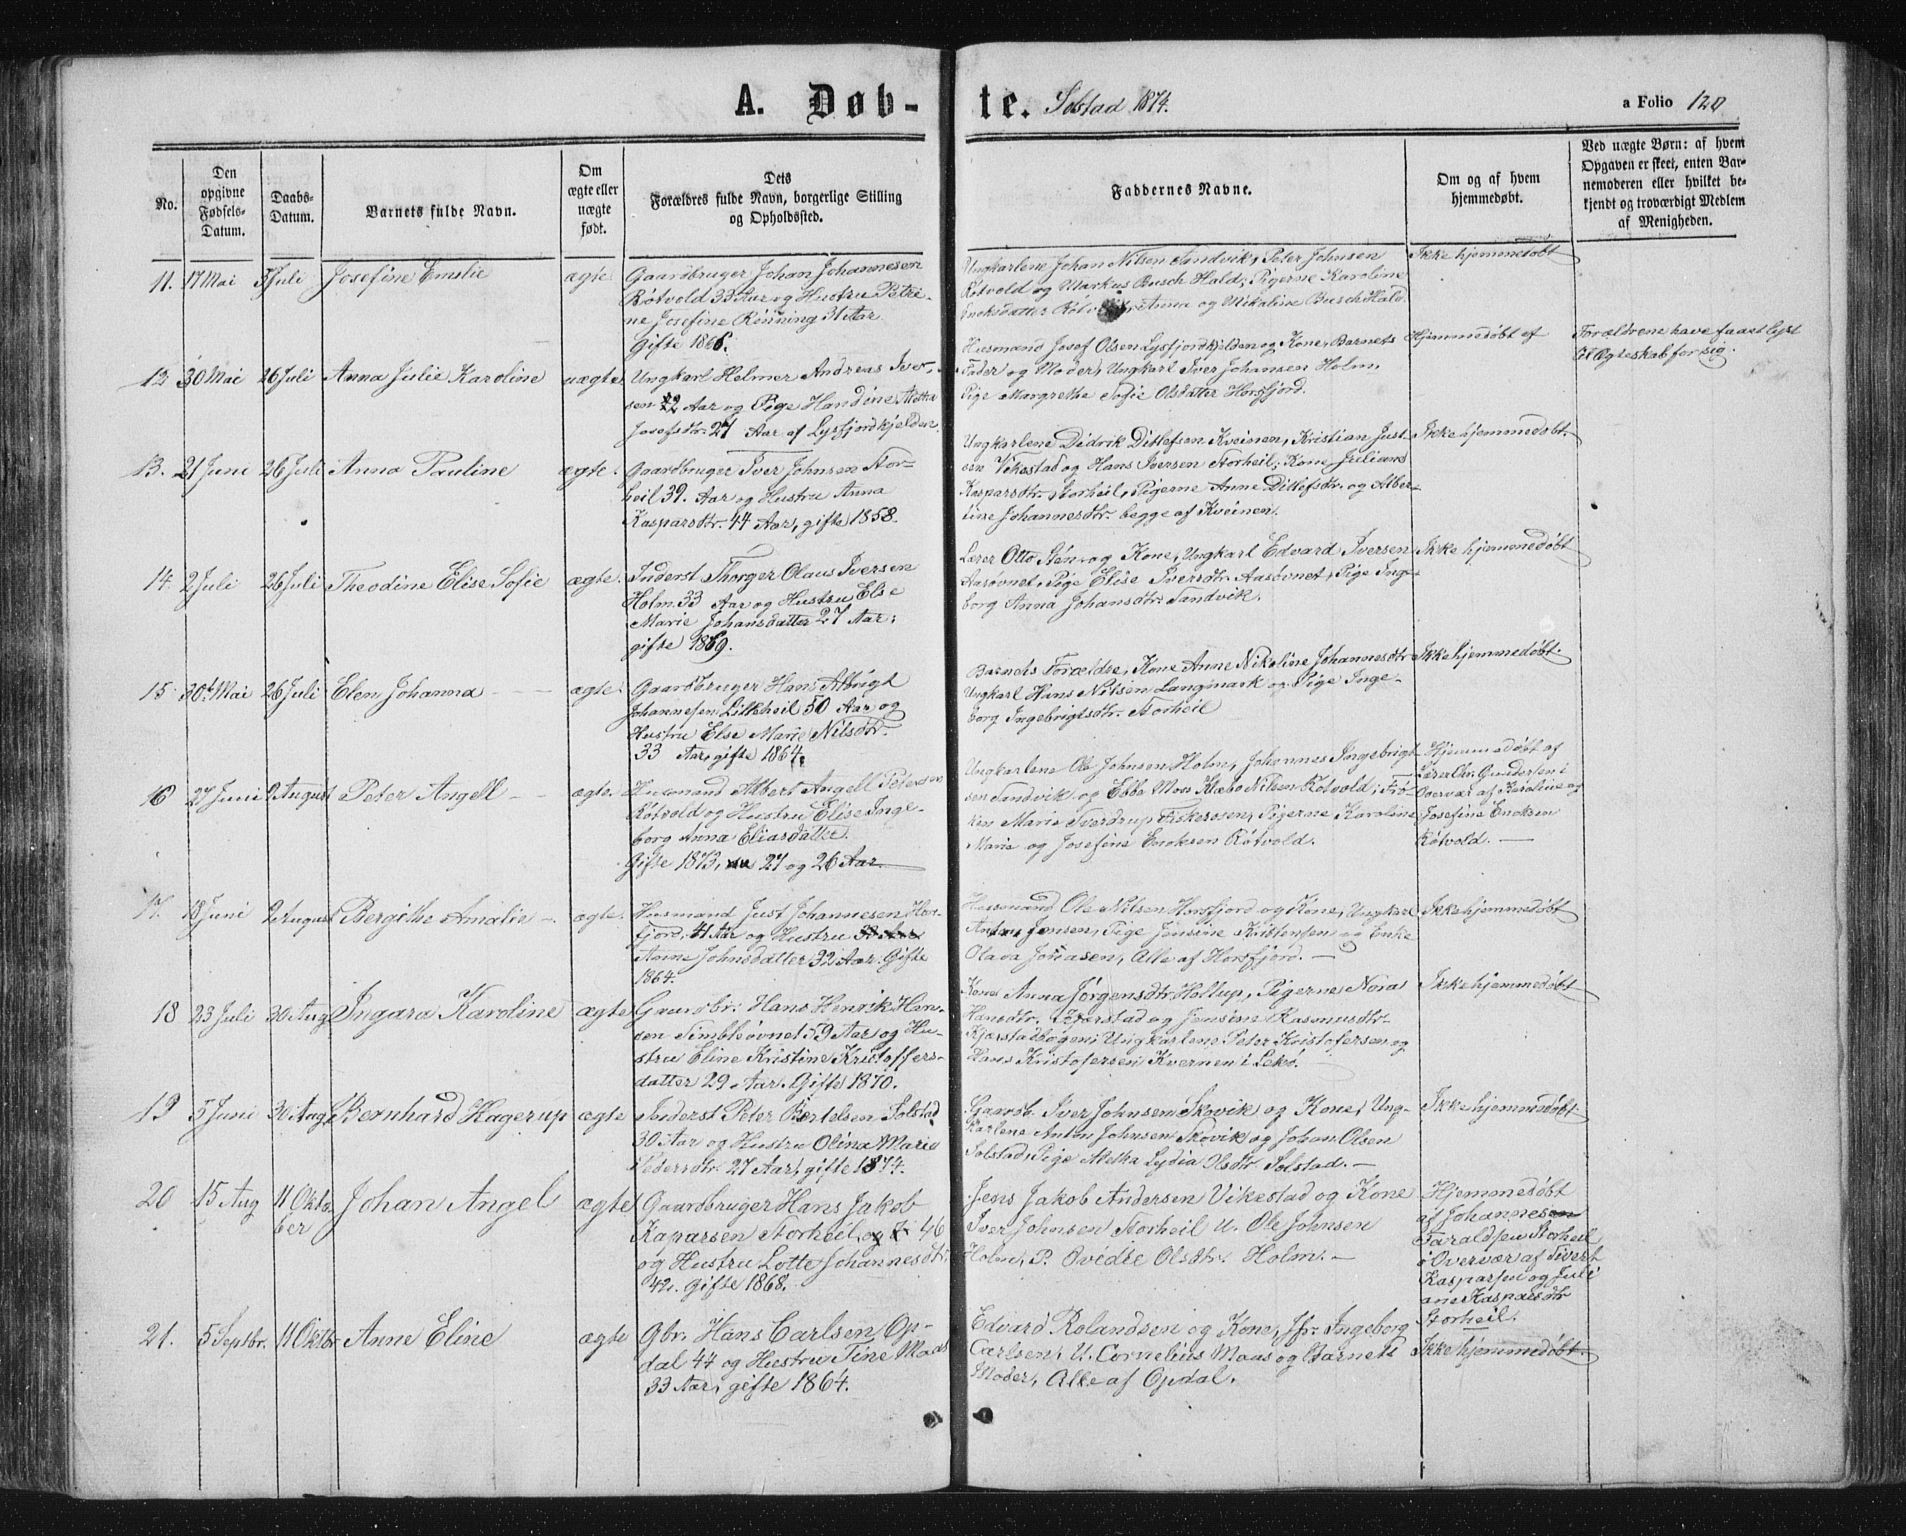 A. Døbte. Solstad 1874.
a Folio 120
No.
Den opgivne Fødsels-Datum.
Daabs-Datum.
Barnets fulde Navn.
Om ægte eller uægte født.
Dets Forældres fulde Navn, borgerlige Stilling og Opholdssted.
Faddernes Navne.
Om og af hvem hjemmedøbt.
Ved uægte Børn: af hvem Opgaven er skeet, enten Barnemoderen eller hvilket bekjendt og troværdigt Medlem af Menigheden.
11. 17 Mai 5 Juli Josefine Emelie ægte.
Gaardbruger Johan Johannesen
Røtvold 33 Aar og Hustru Petri-
ne Josefine Rønning 31 Aar
Gifte 1866.
Ungkarlene Johan Nilsen Sandvik, Peter Johnsen
Røtvold og Markus Busch Hald; Pigerne Karoline
Enoksdatter Røtvold, Anna og Nikoline Busch Hald.
Ikke hjemmedøbt
12 30 Mai 26 Juli Anna Julie Karoline uægte
Ungkarl Helmer Andreas Iver-
sen 22 Aar og Pige Handine Metta
Josefsdtr. 27 Aar af Lysfjordkjelden.
Husmand Josef Olsen Lysfjordkjelden og Kone, Barnets
Fader og Moder, Ungkarl Iver Johansen Holm,
Pige Margrethe Sofie Olsdatter Horsfjord.
Hjemmedøbt af
Forældrene have faaet lyst
til Ægteskab for sig.
13. 21 Juni 26 Juli Anna Pauline ægte.
Gaardbruger Iver Johnsen Stor-
heil 39. Aar og Hustru Anna
Kasparsdtr. 44 Aar, gifte 1858.
Ungkarlene Didrik Ditlefsen Kveinen, Kristian Just-
sen Vikestad og Hans Iversen Storheil; Kone Juliane
Kasparsdtr. Storheil, Pigerne Anne Ditlefsdtr. og Alber-
tine Johannesdtr. begge af Kveinen.
Ikke hjemmedøbt.
14. 2 Juli 26 Juli Theodine Elise Sofie ægte.
Inderst Thorger Olaus Iversen
Holm 33 Aar og Hustru Else
Marie Johansdatter 27 Aar;
gifte 1869.
Lærer Otto Stén og Kone, Ungkarl Edvard Iversen
Aasøvnet, Pige Elise Iversdtr. Aasøvnet, Pige Inge-
borg Anna Johansdtr. Sandvik.
Ikke hjemmedøbt
15 30te Mai 26 Juli Elen Johanna ægte.
Gaardbruger Hans Albrigt
Johannesen Lilleheil 50 Aar og
Hustru Else Marie Nilsdtr.
33 Aar, gifte 1864.
Barnets Forældre, Kone Anne Nikoline Johannesdtr
Ungkarl Hans Nilsen Langmark og Pige Inge-
borg Ingebrigtsdtr. Storheil
Ikke hjemmedøbt.
16 27 Juni 2 August Peter Angell ægte.
Husmand Albert Angell Petersen
Røtvold og Hustru Elise Inge-
borg Anna Eliasdatter
Gifte 1873, 27 og 26 Aar
Ungkarlene Ole Johnsen Holm, Johannes Ingebrigt-
sen Sandvik og Ebbe Moss Klæbo Nilsen Røtvold; Frø-
ken Marie Sverdrup Fiskerosen, Pigerne Karoline
Marie og Josefine Enoksen Røtvold.
Hjemmedøbt af
Lærer Chr. Gundersen i
Overvær af Karoline og
Josefine Enoksen
Røtvold.
17. 18 Juni 2 August Bergithe Amalie ægte.
Husmand Just Johannesen Hors-
fjord, 41 Aar og Hustru
Anne Johnsdatter 32 Aar. Gifte
1864.
Husmand Ole Nilsen Horsfjord og Kone, Ungkarl
Anton Jensen, Pige Jensine Kristensen og Enke
Olava Jonasen, Alle af Horsfjord.
Ikke hjemmedøbt
18 23 Juli 30 Aug Ingara Karoline ægte
Gaardbr. Hans Henrik Han-
sen Simbleøvnet 59 Aar og Hu-
stru Eline Kristine Kristoffers-
datter 29. Aar. Gifte 1870.
Kone Anna Jørgensdtr. Hollup, Pigerne Nora
Hansdtr. Kjærstad og Jensine Rasmusdtr.
Kjærstadbogen; Ungkarlene Peter Kristofersen og
Hans Kristofersen Kvernen i Lekø.
Ikke hjemmedøbt
19 5 Juni 30 Augt Bernhard Hagerup ægte
Inderst Peter Bertelsen Solstad
30 Aar og Hustru Olina Marie
Pedersdtr. 27 Aar, gifte 1874.
Gaardb. Iver Johnsen Skovik og Kone, Ung-
karlene Anton Johnsen Skovik og Johan Olsen
Solstad, Pige Metha Lydia Olsdtr Solstad.
Ikke hjemmedøbt
20 15 Aug 11 Okto-
ber Johan Angel ægte
Gaardbruger Hans Jakob
Kaparsen Storheil 46
og Hustru Lotte Johannesdtr.
42. Gifte 1868.
Jens Jakob Andersen Vikestad og Kone
Iver Johnsen Storheil U. Ole Johnsen
Holm, P. Ovedie Olsdtr. Holm.
Hjemmedøbt
af Johannes
Taraldsen Storheil
i Overvær af Sivert
Kasparsen og Juli
ane Kasparsdtr
Storheil.
21. 5 Septbr. 11 Oktbr Anne Eline ægte
Gbr. Hans Carlsen Op-
dal 44 og Hustru Tine Maas
33 Aar, gifte 1864.
Edvard Rolandsen og Kone, Jfr. Ingeborg
Carlsen, U. Cornelius Maas og Barnets
Moder, Alle af Opdal.
Ikke hjemmedøbt.